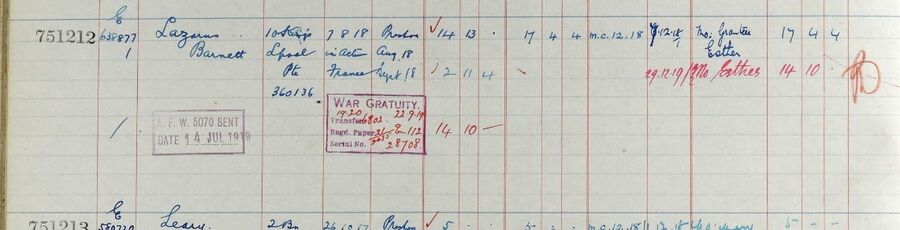 E
751212 638877 Lazarus 7 8 18 Preston 14 13 . 17 4 4 m.c.12.18 .12.18 Mo: Grantee 17 4 4
1 Barnett L'pool in Action Aug. 18 Esther
Pte France Sept 18 2 11 4 29.12.19 Mo Esther 14 10 .
360136
WAR GRATUITY.
19.20 22.9.19
A. F. W. 5070 SENT Transfers
1 DATE 14 JUL 1919 Regd. Paper 2 112 14 10 —
Serial No. 28708
E
751213 Leary 2 Bn 26 10 17 Preston 5